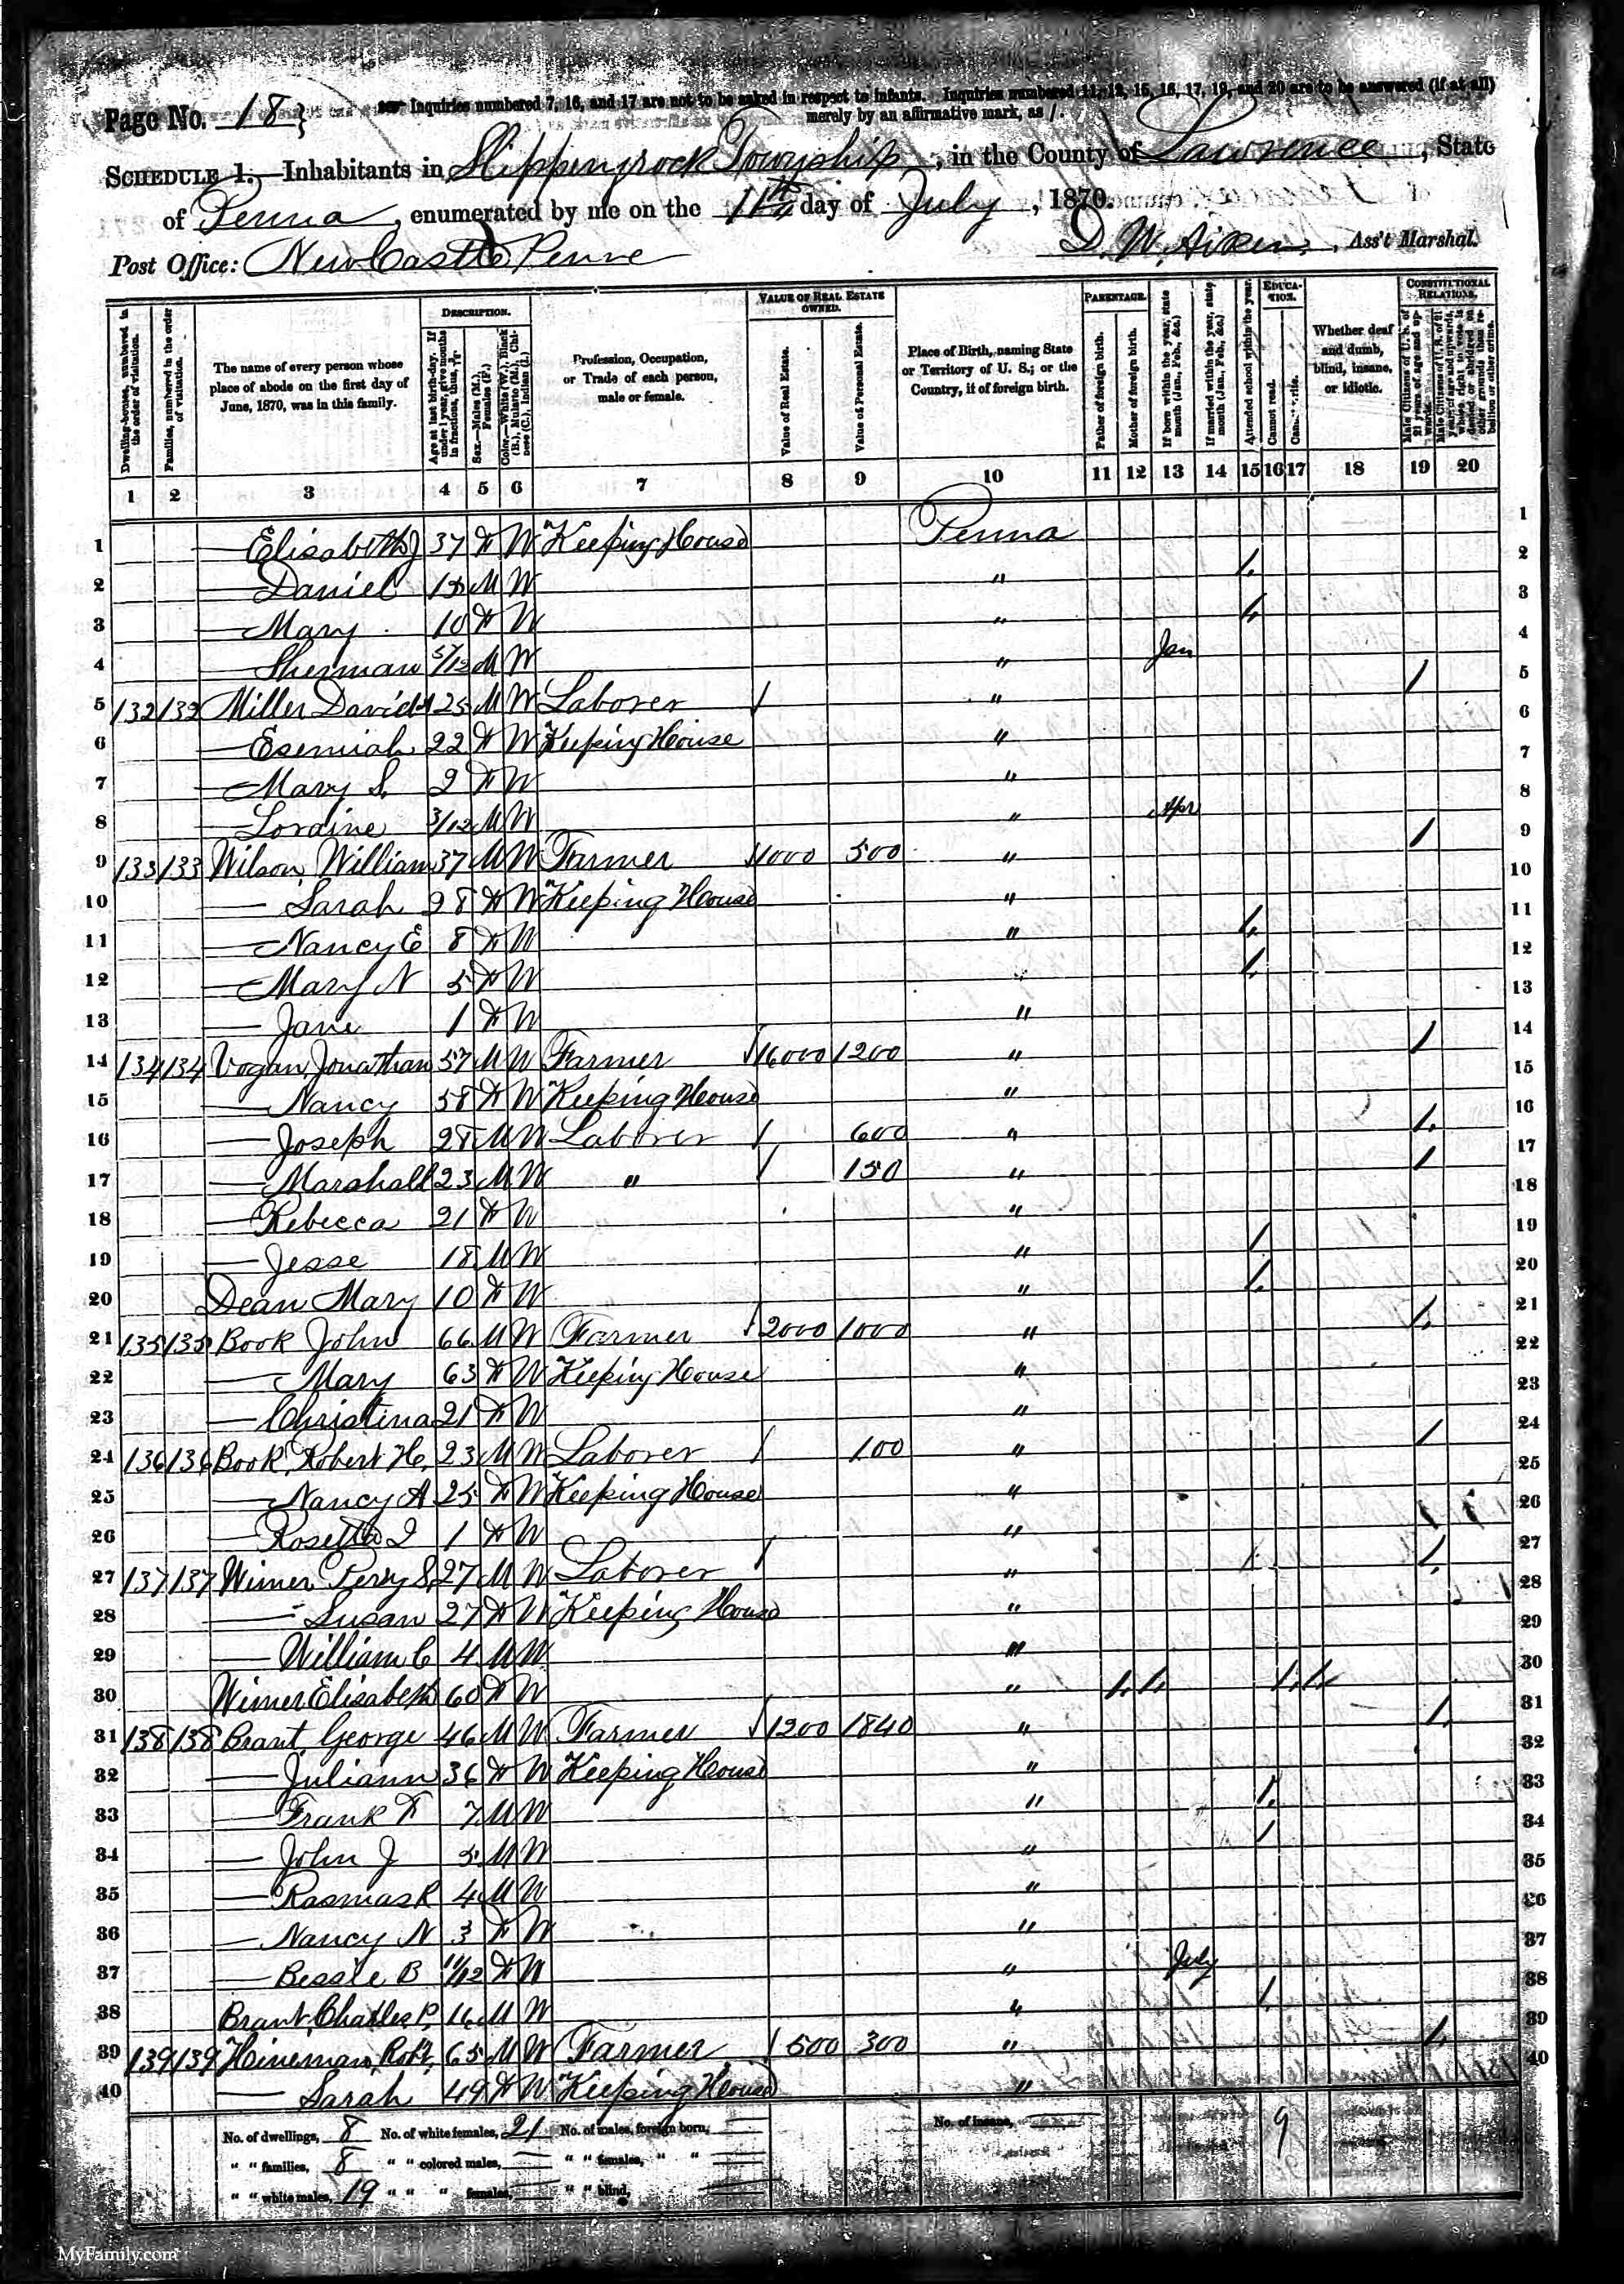 Page No. 18}
Inquiries numbered 7, 16, and 17 are not to be asked in respect to infants. Inquiries numbered 11, 12, 15, 16, 17, 19, and 20 are to be answered (if at all)
merely by an affirmative mark, as /.
SCHEDULE 1.—Inhabitants in Slippenyrock Township, in the County of Lawrence, State
of Penna, enumerated by me on the 11th day of July, 1870.
Post Office: New Castle Penne D. W. Aiken, Ass't Marshal.
Dwelling-houses, numbered in the order of visitation.
Families, numbered in the order of visitation.
The name of every person whose place of abode on the first day of June, 1870, was in this family.
DESCRIPTION.
Age at last birth-day. If under 1 year, give months in fractions, thus,
Sex.—Males (M.), Females (F.)
Color.—White (W.), Black (B.), Mulatto (M.), Chinese (C.), Indian (I.)
Profession, Occupation, or Trade of each person, male or female.
VALUE OF REAL ESTATE OWNED.
Value of Real Estate.
Value of Personal Estate.
Place of Birth, naming State or Territory of U. S.; or the Country, if of foreign birth.
PARENTAGE.
Father of foreign birth.
Mother of foreign birth.
If born within the year, state month (Jan., Feb., &c.)
If married within the year, state month (Jan., Feb., &c.)
EDUCATION.
Attended school within the year.
Cannot read.
Whether deaf and dumb, blind, insane, or idiotic.
CONSTITUTIONAL RELATIONS.
Male Citizens of U. S. of 21 years of age and upwards.
Male Citizens of U. S. of 21 years of age and upwards, whose right to vote is denied or abridged on other grounds than rebellion or other crime.
1 2 3 4 5 6 7 8 9 10 11 12 13 14 15 16 17 18 19 20
1 — Elisabeth J 37 F W Keeping House Penna 1
2 — Daniel M W " / 2
3 — Mary 10 F W " / 3
4 — Sherman 5/12 M W " Jan 4
5 132 132 Miller David 25 M W Laborer / " / 5
6 — Esemiah 22 F W Keeping House " 6
7 — Mary S. 2 F W " 7
8 — Loraine 3/12 M W " Apr 8
9 133 133 Wilson, William 37 M W Farmer 500 " / 9
10 — Sarah 28 F W Keeping House " 10
11 — Nancy E 8 F W " / 11
12 — Mary N 5 F W " / 12
13 — Jane 1 F W " 13
14 134 134 Vogan, Jonathan 57 M W Farmer 1200 " / 14
15 — Nancy 58 F W Keeping House " 15
16 — Joseph 28 M W Laborer / 600 " / 16
17 — Marshall 23 M W " / 150 " / 17
18 — Rebecca 21 F W " 18
19 — Jesse 18 M W " / 19
20 Dean Mary 10 F W " / 20
21 135 135 Book John 66 M W Farmer 2000 1000 " / 21
22 — Mary 63 F W Keeping House " 22
23 — Christina 21 F W " 23
24 136 136 Book, Robert H. 23 M W Laborer / 100 " / 24
25 — Nancy A 25 F W Keeping House " 25
26 — Rosetta I 1 F W " 26
27 137 137 Wimer Perry S. 27 M W Laborer / " / 27
28 — Susan 27 F W Keeping House " 28
29 — William C 4 M W " 29
30 Wimer Elisabeth 60 F W " / / / / 30
31 138 138 Brant, George 46 M W Farmer 1200 1840 " / 31
32 — Juliann 36 F W Keeping House " 32
33 — Frank F 7 M W " / 33
34 — John J 5 M W " / 34
35 — Rasmas R 4 M W " 35
36 — Nancy N 3 F W " 36
37 — Bessie B 11/12 F W " July 37
38 Brant, Charles P. 16 M W " / 38
39 139 139 Heineman, Robt, 65 M W Farmer / 500 300 " / 39
40 — Sarah 49 F W Keeping House " 40
No. of dwellings, 8 No. of white females, 21 No. of males, foreign born, — No. of insane, — 9
" " families, 8 " " colored males, — " " females, " " —
" " white males, 19 " " " females, — " " blind, —
MyFamily.com